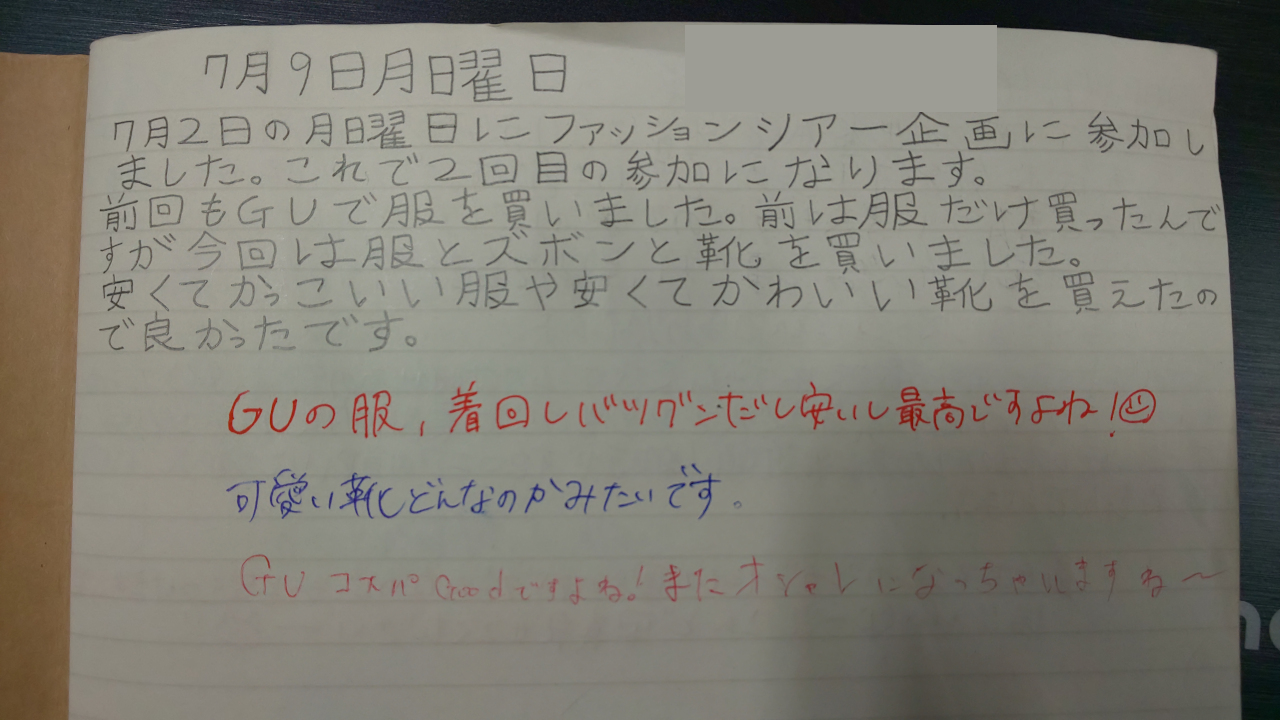 7月9日月曜日
7月2日の月曜日にファッションツアー企画に参加し
ました。これで2回目の参加になります。
前回もGUで服を買いました。前は服だけ買ったんで
すが今回は服とズボンと靴を買いました。
安くてかっこいい服や安くてかわいい靴を買えたの
で良かったです。
GUの服、着回しバツグンだし安いし最高ですよね!
可愛い靴どんなのかみたいです。
GUコスパGoodですよね!またオシャレになっちゃいますね～